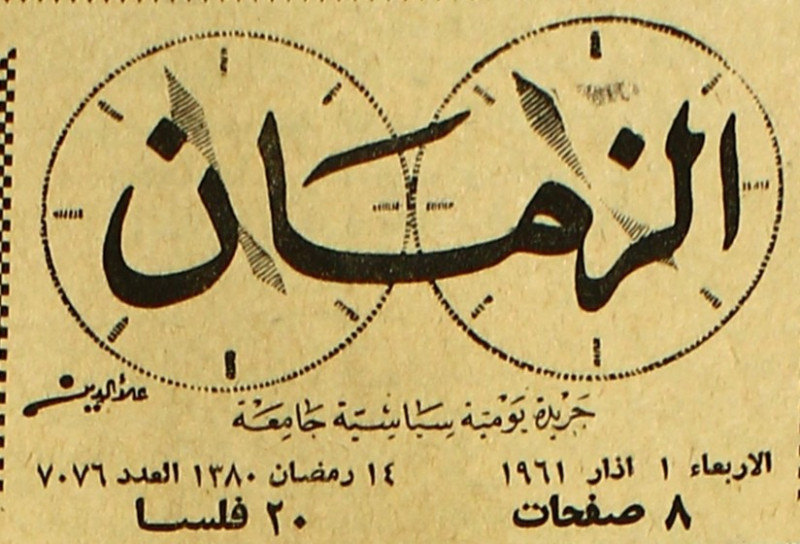 الزمان
علاء الدين
جريدة يومية سياسية جامعة
الاربعاء ١ اذار ١٩٦١ ١٤ رمضان ١٣٨٠ العدد ٧٠٧٦
٨ صفحات ٢٠ فلسا